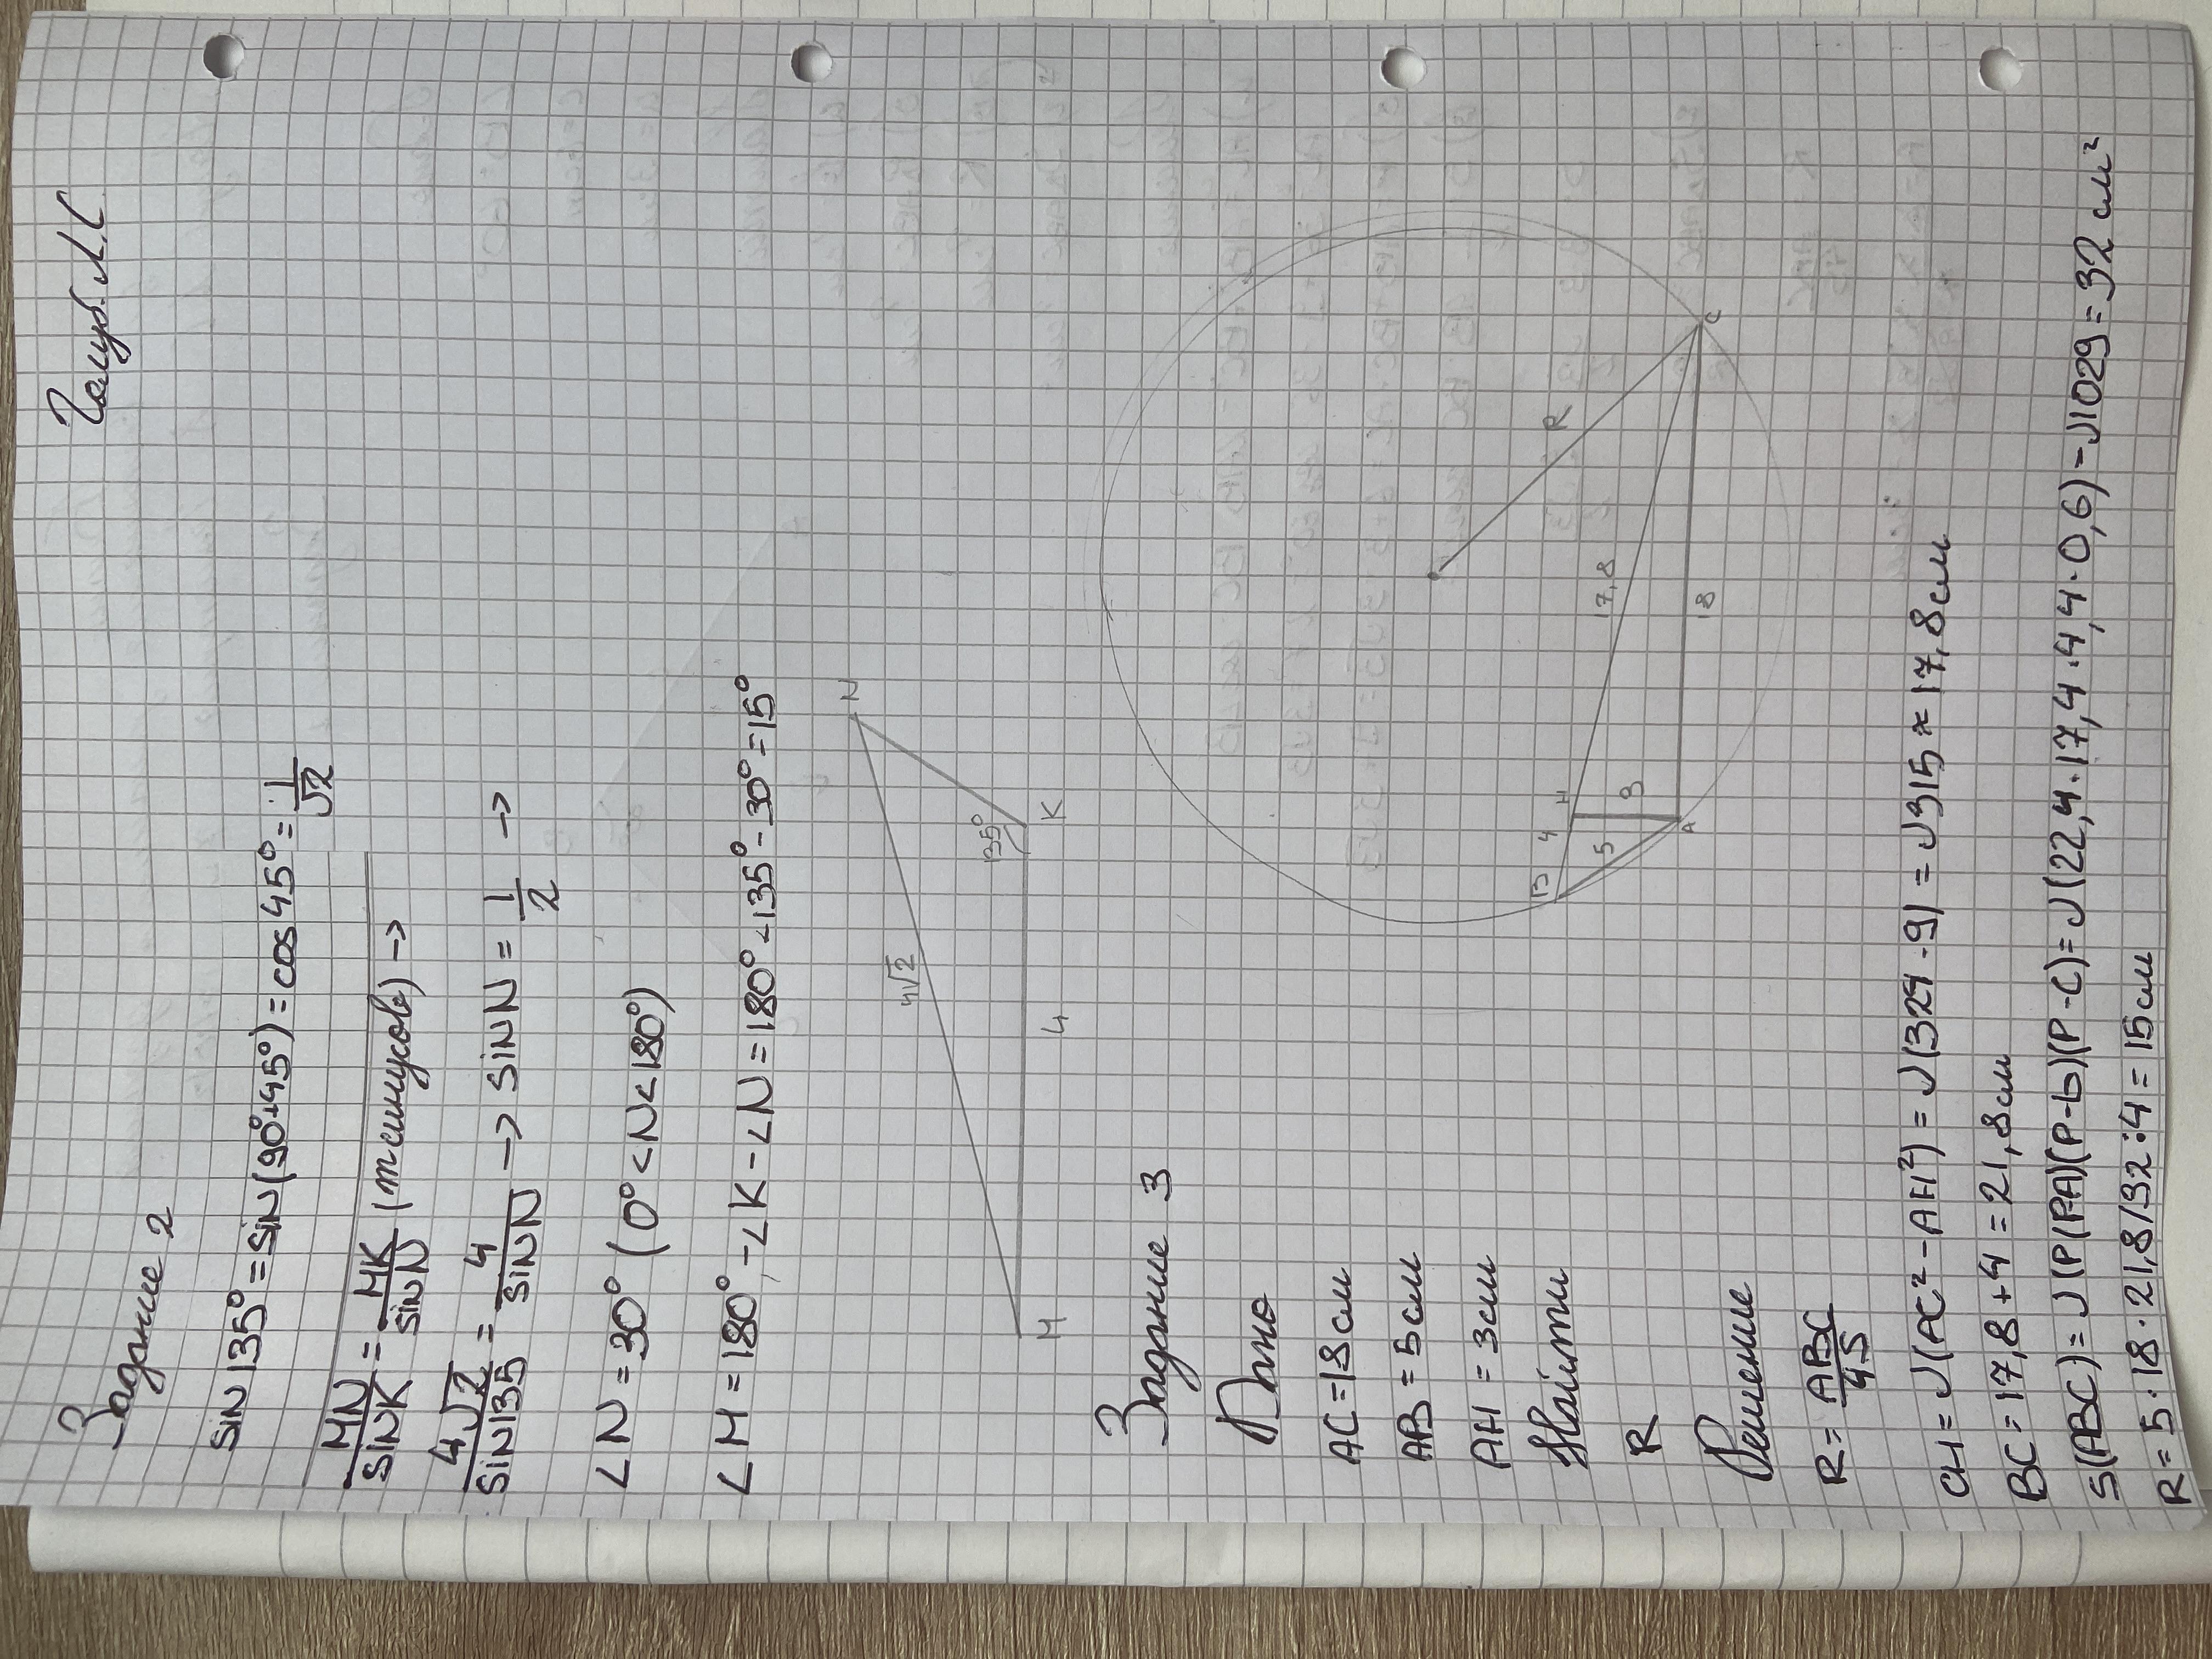 Голуб Л.С
Задание 2
sin 135° = sin(90°+45°) = cos 45° = 1/√2
MN/sinK = MK/sinN (т синусов) ->
4√2/sin135 = 4/sinN -> sinN = 1/2 ->
∠N = 30° (0° < N < 180°)
∠M = 180° - ∠K - ∠N = 180° - 135° - 30° = 15°
N
4√2
135°
K
4
M
Задание 3
Дано
AC = 18 см
AB = 5 см
AH = 3 см
Найти
R
Решение
R
B 4 H
17,8
5 3
18
A
C
R = ABC/4S
CH = √(AC² - AH²) = √(324 - 9) = √315 ≈ 17,8 см
BC = 17,8 + 4 = 21,8 см
S(ABC) = √(P(PA)(P-b)(P-C) = √(22,4·17,4·4,4·0,6) = √1029 = 32 см²
R = 5·18·21,8/32:4 = 15 см